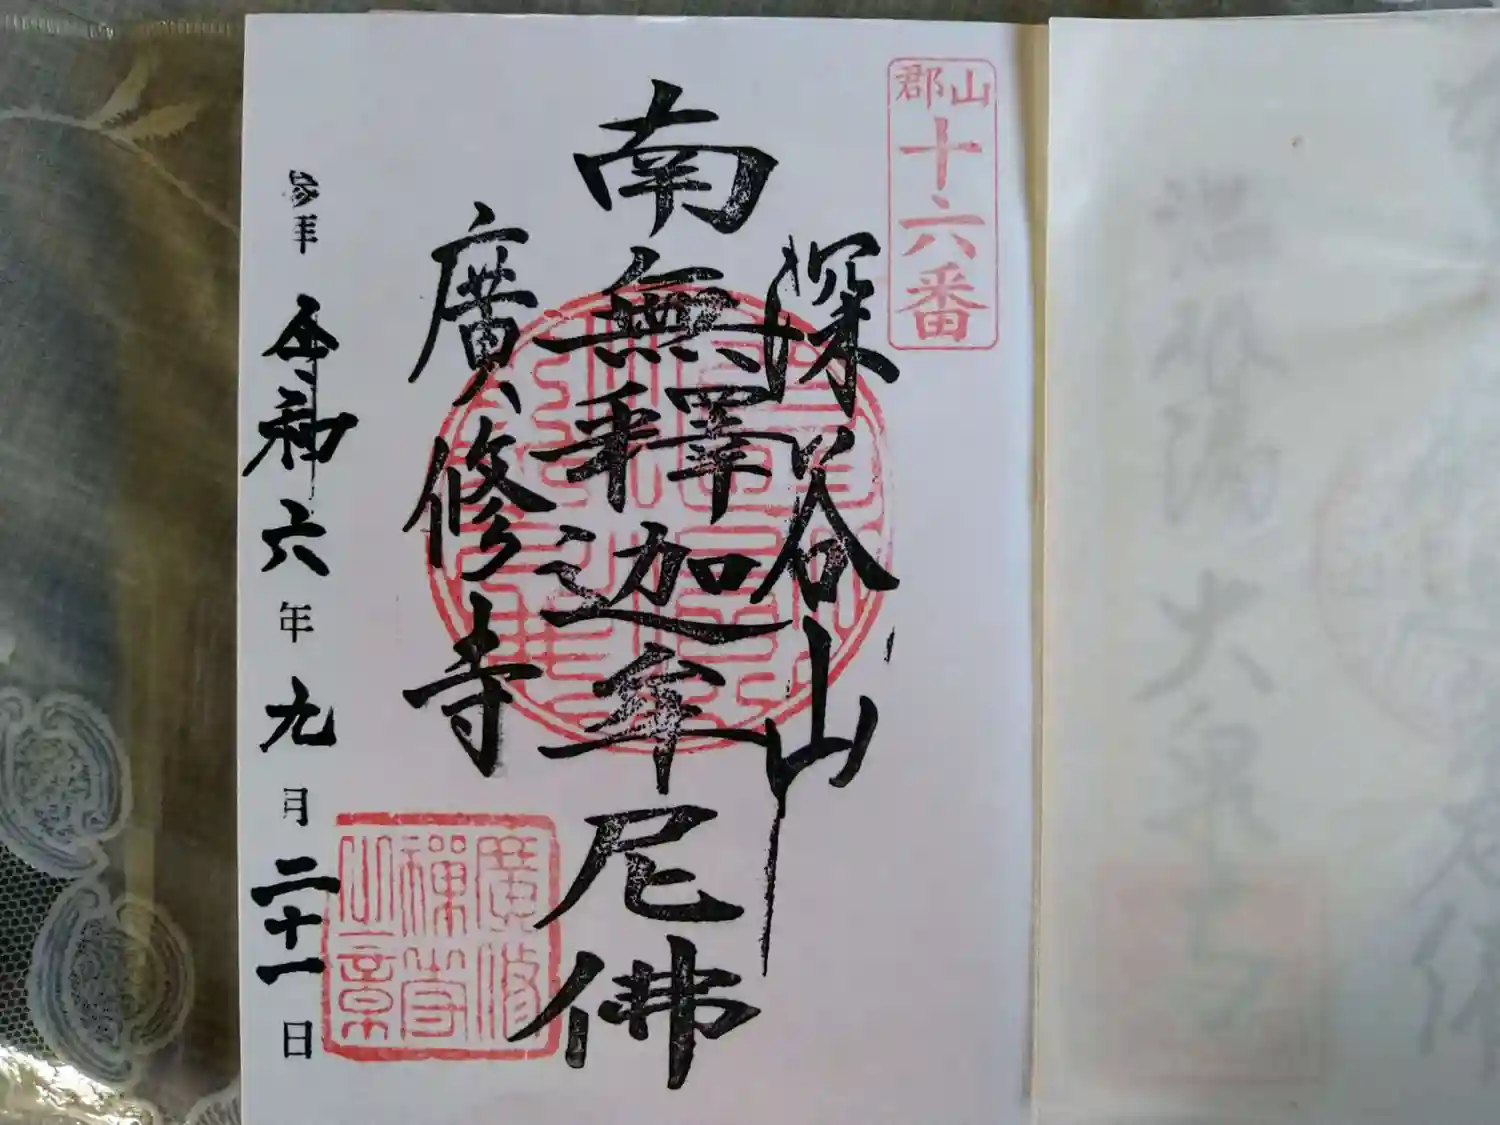 郡山
十六番
深谷山
南無釋迦牟尼佛
廣修寺
廣修
禅寺
之章
参拝 令和六年九月二十一日